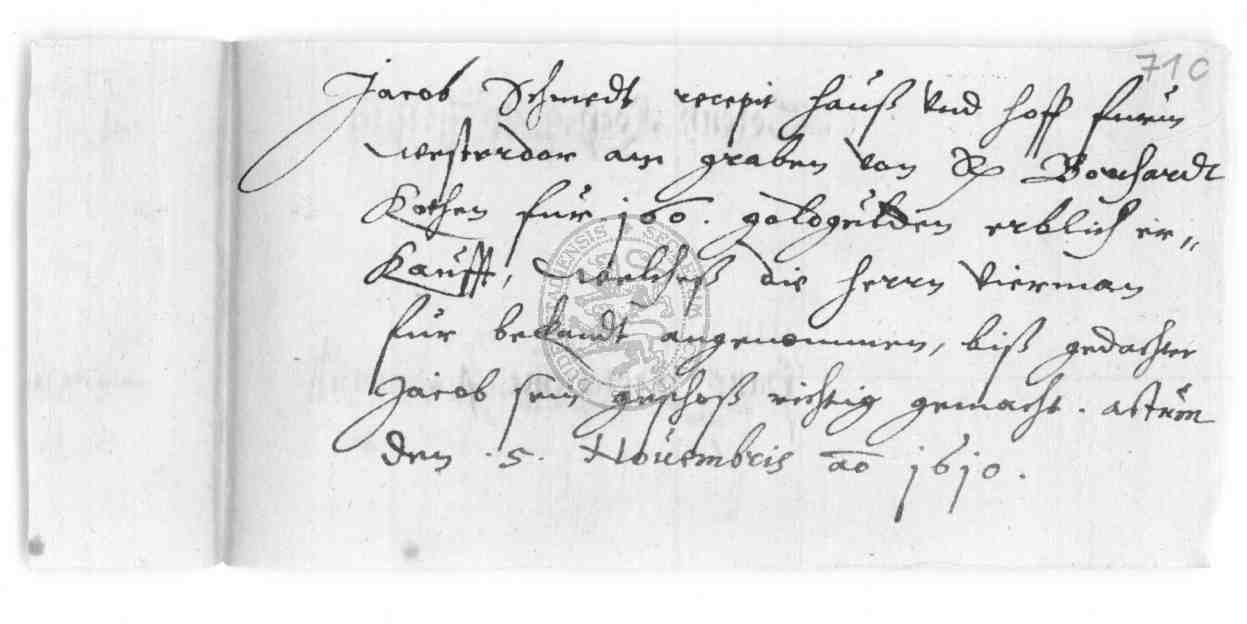 710
Jacob Schmedt recepit hauß vnd hoff furm
westerdor am graben von Bonhardt
Kothen fur 160. goltgulden erblich er„
Kaufft, welcheß die herrn vierman
fur bekandt angenommen, biß gedachter
Jacob sein geschoß richtig gemacht. actum
den .5. Nouembris ao 1610.